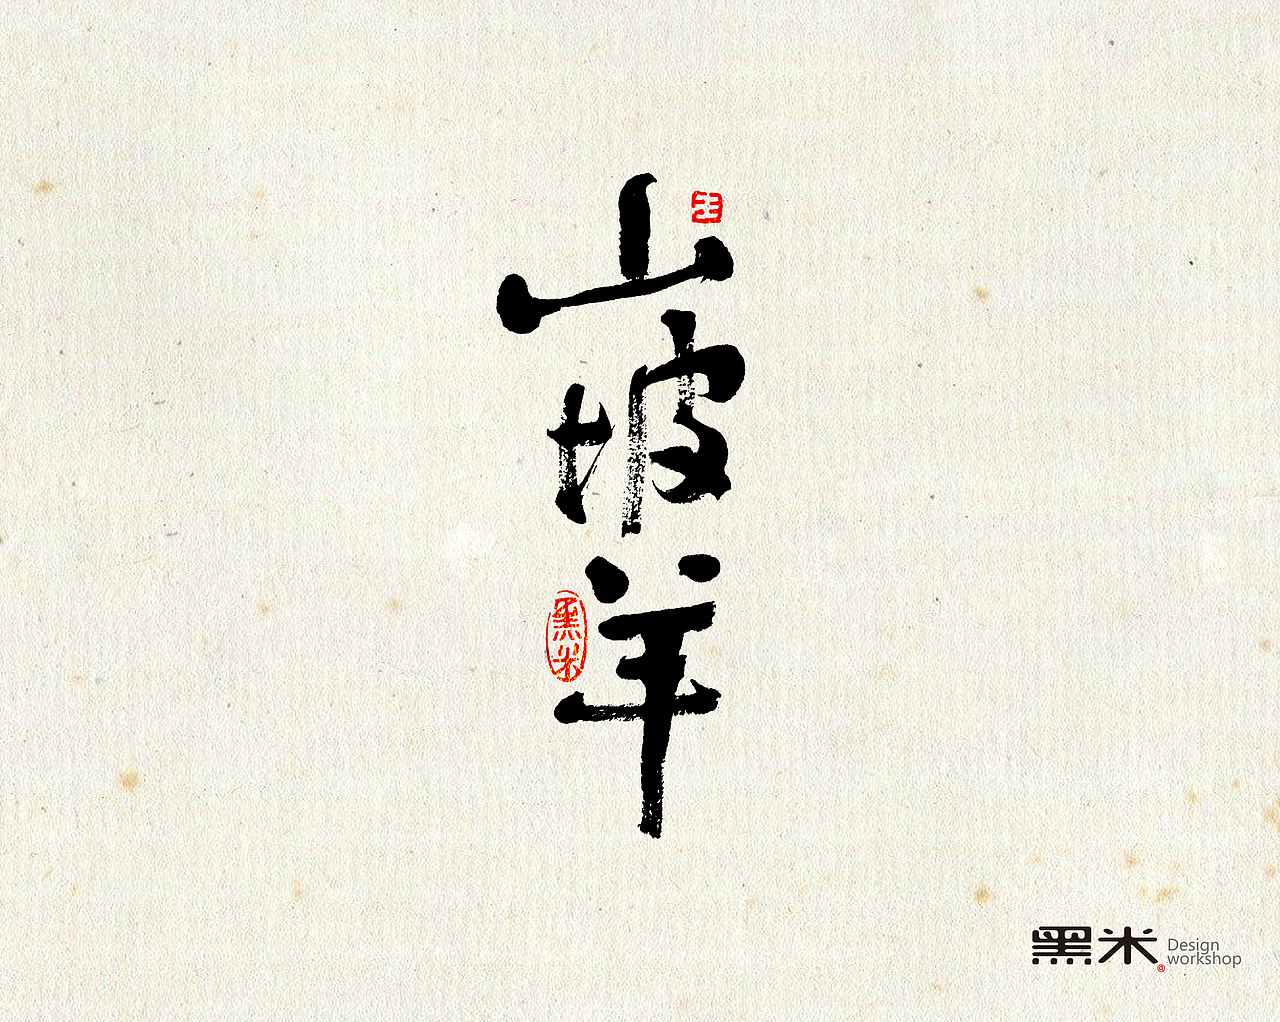 山坡羊
黑米
黑米
Design
workshop